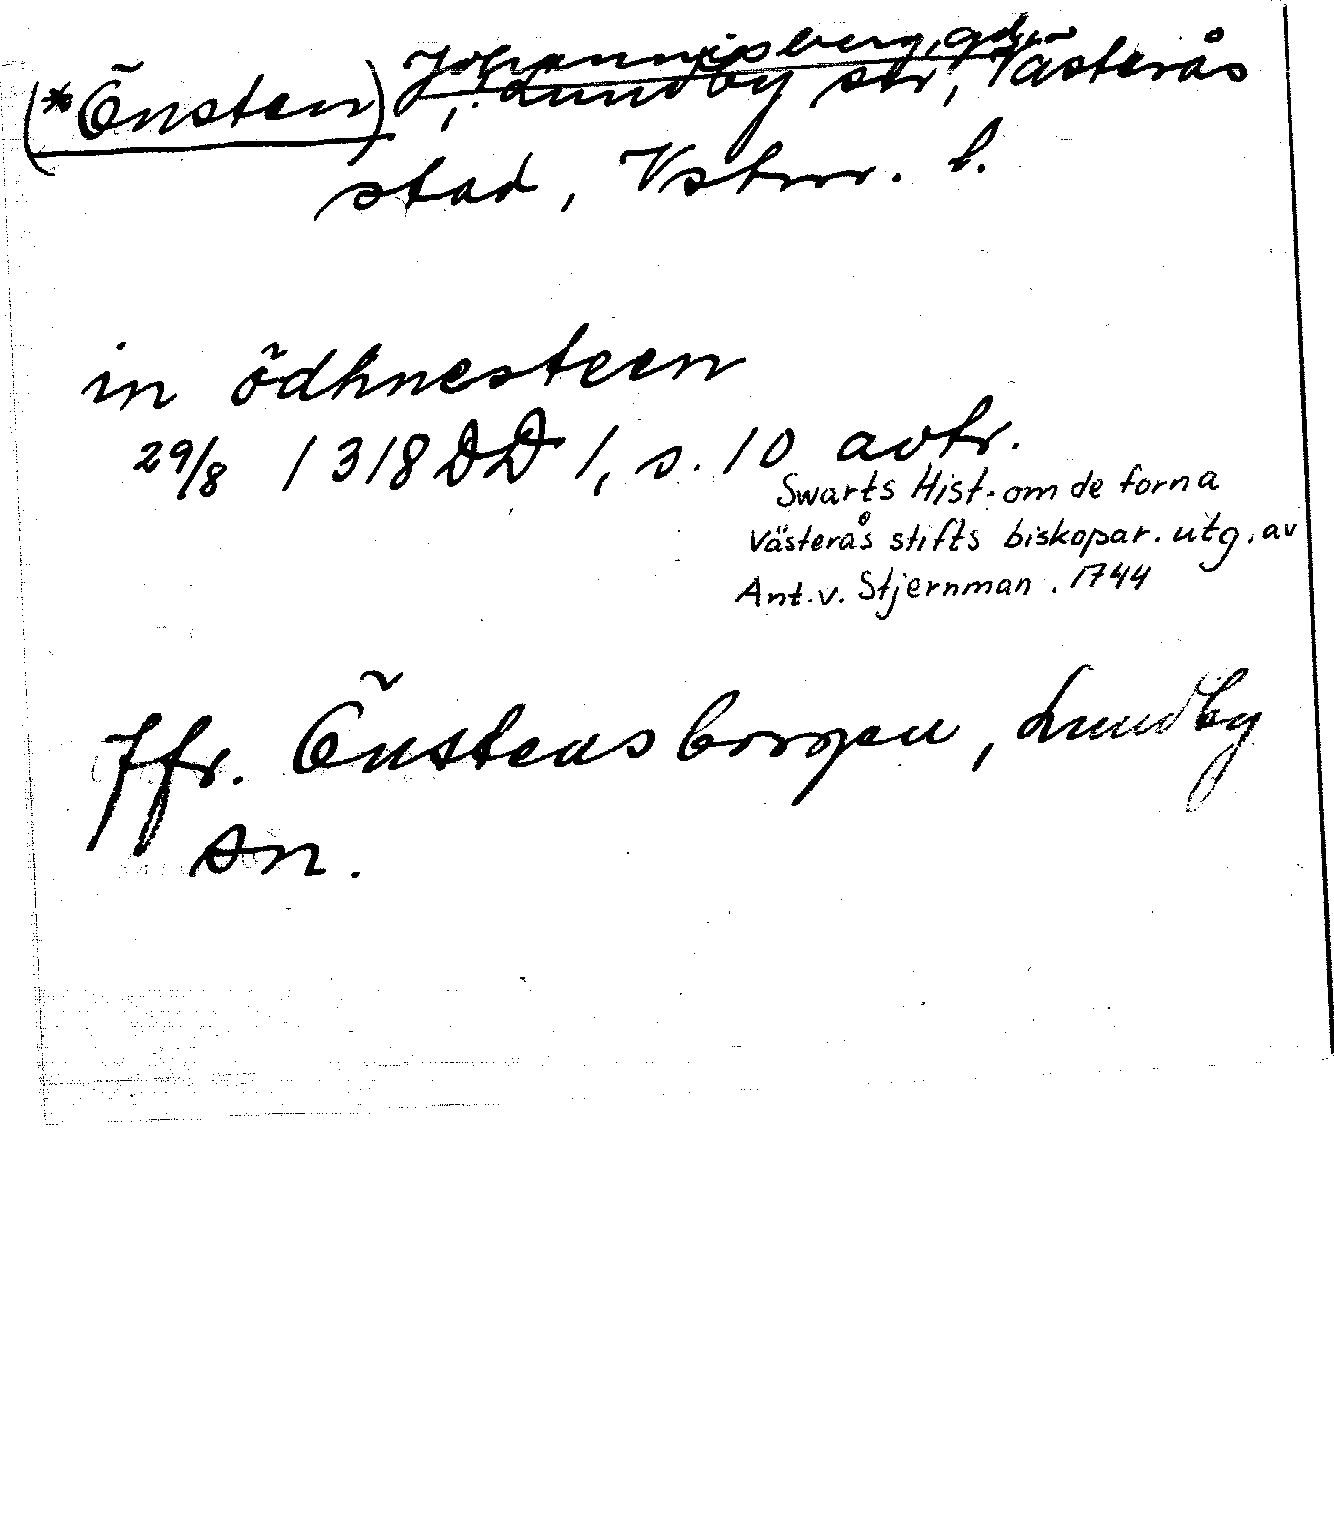 Johannisberg, gd,
(*Önsten), Lundby sn, Västerås
stad, Vstm. l.
in ödhnesteen
29/8 1318 DD 1, s. 10 avtr.
Swarts Hist. om de forna
Västerås stifts biskopar. utg. av
Ant. v. Stjernman. 1744
Jfr. Önstensborgen, Lundby
sn.